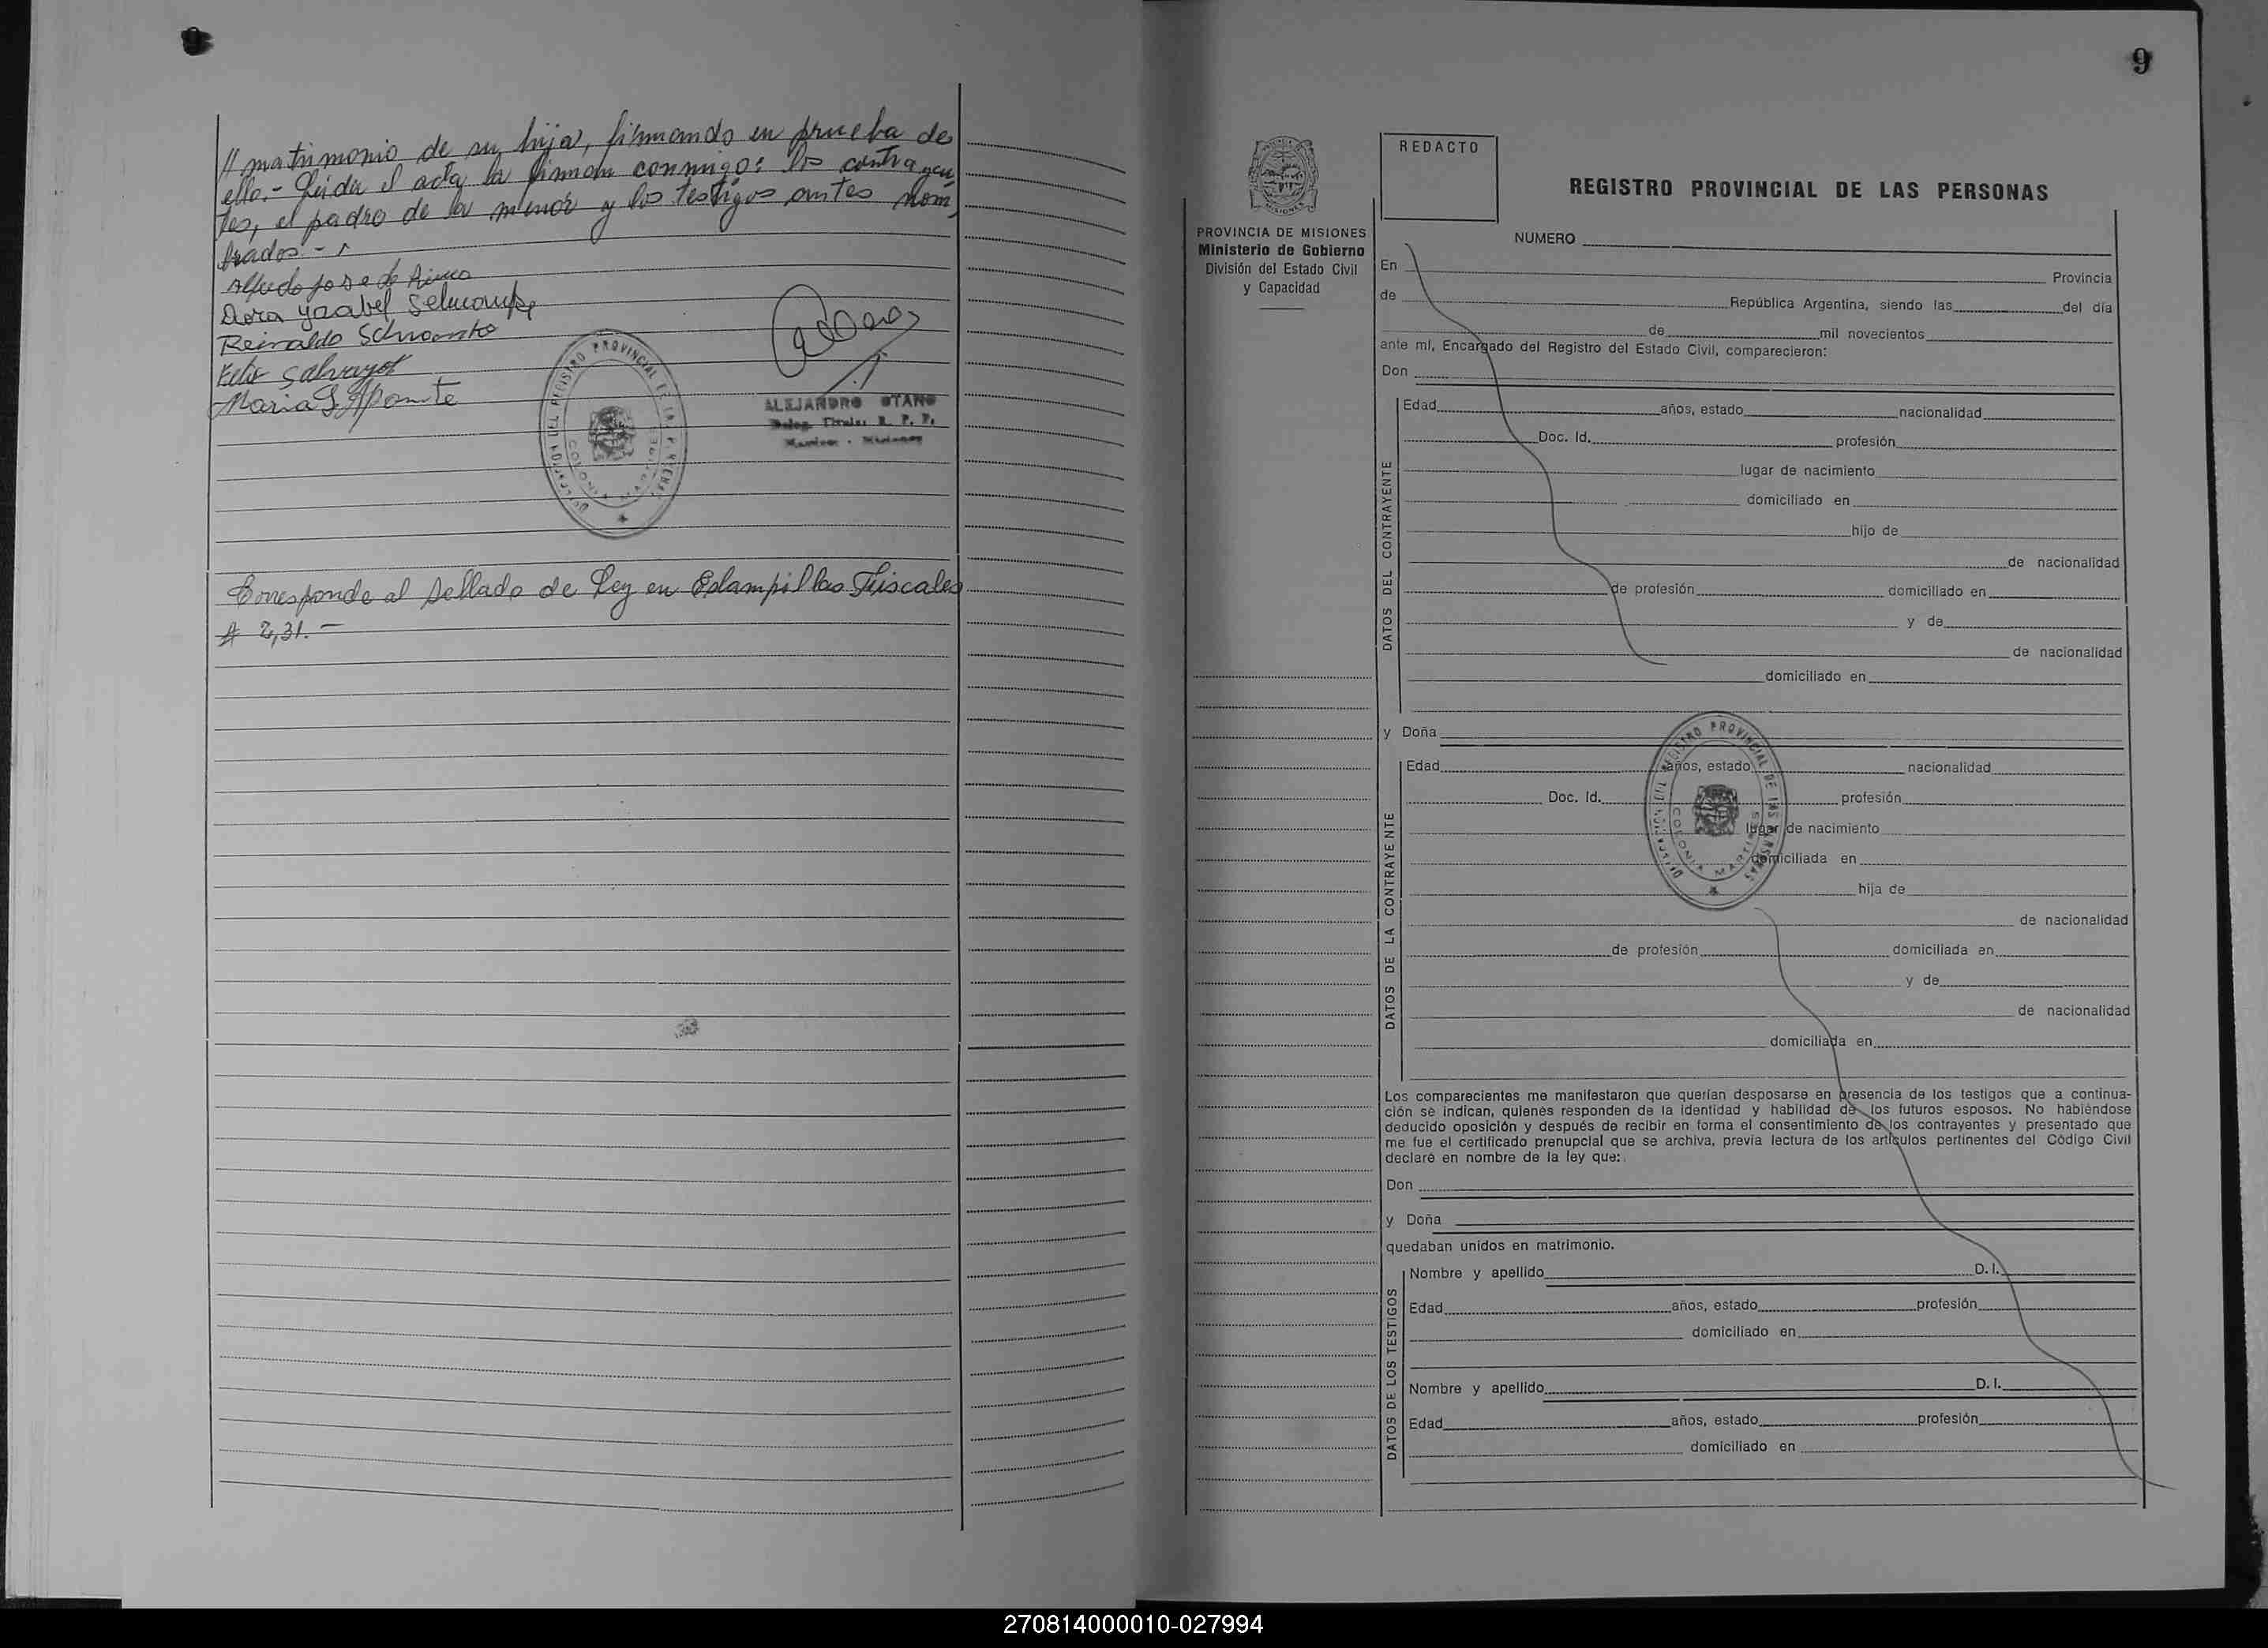 // matrimonio de su hija, firmando en prueba de
ello.- Leida el acta la firman conmigo: los contrayen
tes, el padre de la menor y los testigos antes nom
brados.-
Alfredo Jose de
Dora Ysabel
Reinaldo
Felix
Maria S Aponte
DELEGACION DEL REGISTRO PROVINCIAL DE LAS PERSONAS
COLONIA MARTIRES
ALEJANDRO OTANO
Deleg. Titular R. P. P.
Martires - Misiones
Corresponde al Sellado de Ley en Estampillas Fiscales
A 2,31.-
9
PROVINCIA DE MISIONES
Ministerio de Gobierno
División del Estado Civil
y Capacidad
MISIONES
REDACTO
REGISTRO PROVINCIAL DE LAS PERSONAS
NUMERO
En Provincia
de República Argentina, siendo las del día
de mil novecientos
ante mí, Encargado del Registro del Estado Civil, comparecieron:
Don
DATOS DEL CONTRAYENTE
Edad años, estado nacionalidad
Doc. Id. profesión
lugar de nacimiento
domiciliado en
hijo de
de nacionalidad
de profesión domiciliado en
y de
de nacionalidad
domiciliado en
y Doña
DATOS DE LA CONTRAYENTE
Edad años, estado nacionalidad
Doc. Id. profesión
lugar de nacimiento
domiciliada en
hija de
de nacionalidad
de profesión domiciliada en
y de
de nacionalidad
domiciliada en
DELEGACION DEL REGISTRO PROVINCIAL DE LAS PERSONAS
COLONIA MARTIRES
Los comparecientes me manifestaron que querían desposarse en presencia de los testigos que a continua-
ción se indican, quienes responden de la identidad y habilidad de los futuros esposos. No habiéndose
deducido oposición y después de recibir en forma el consentimiento de los contrayentes y presentado que
me fue el certificado prenupcial que se archiva, previa lectura de los artículos pertinentes del Código Civil
declaré en nombre de la ley que:
Don
y Doña
quedaban unidos en matrimonio.
DATOS DE LOS TESTIGOS
Nombre y apellido D. I.
Edad años, estado profesión
domiciliado en
Nombre y apellido D. I.
Edad años, estado profesión
domiciliado en
270814000010-027994